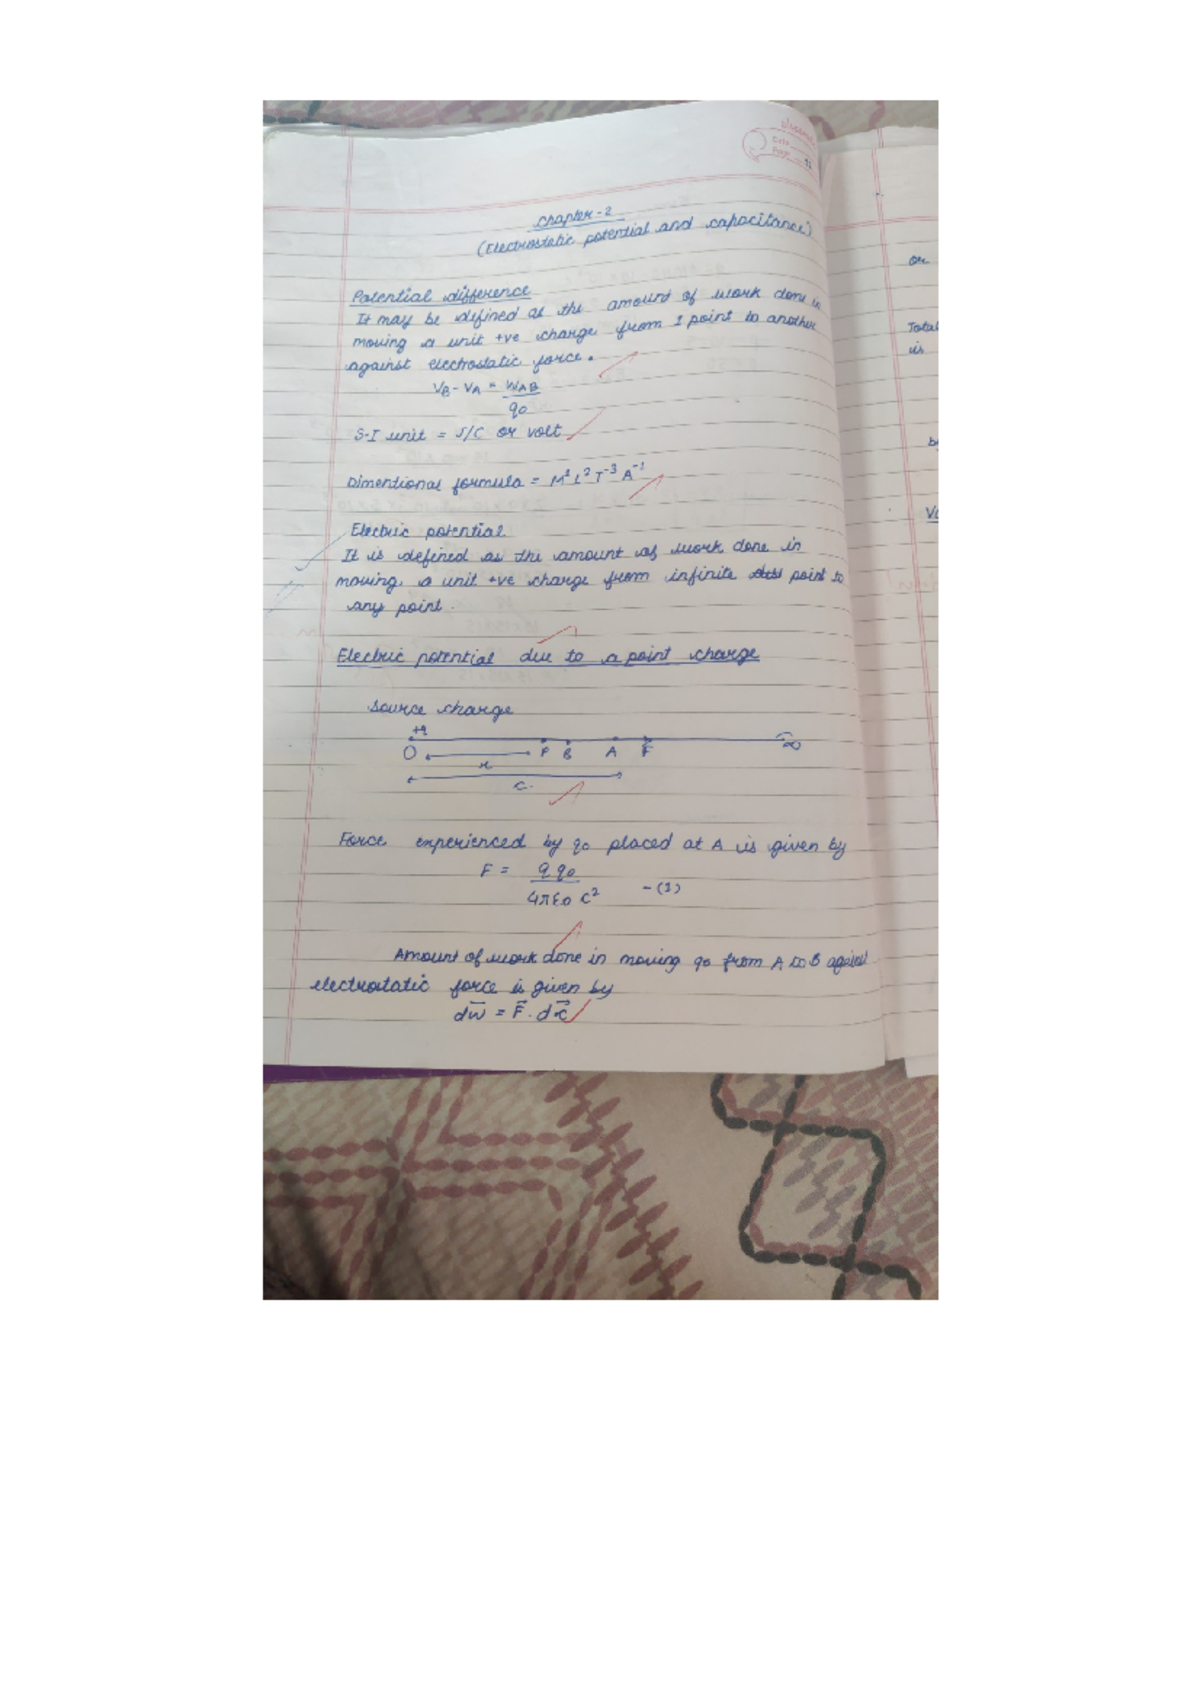 Date
Page
Chapter-2
(Electrostatic potential and capacitance)
Potential difference
It may be defined as the amount of work done in
moving a unit +ve charge from 1 point to another
against electrostatic force.
VB - VA = WAB
q0
S-I unit = J/C or volt
Dimentional formula = M¹ L² T⁻³ A⁻¹
Electric potential
It is defined as the amount of work done in
moving a unit +ve charge from infinite point to
any point.
Electric potential due to a point charge
Source charge
+q
O P B A F ∞
Force experienced by q0 placed at A is given by
F = q q0
4πε0 c² -(1)
Amount of work done in moving q0 from A to B against
electrostatic force is given by
dw⃗ = F⃗ . dc⃗
or
Total
is